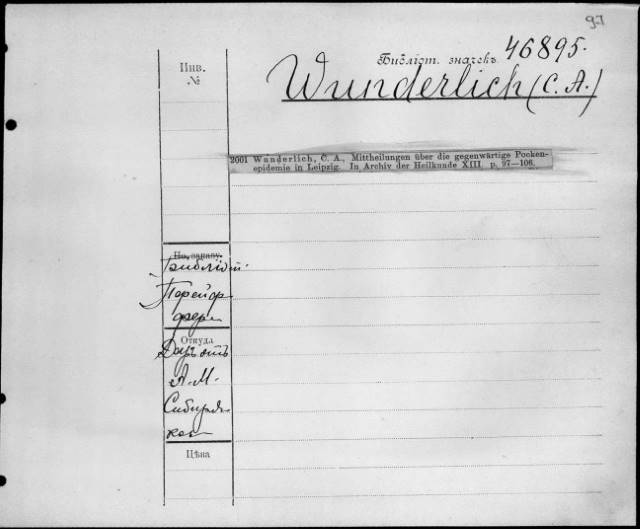 97
Библіот. значекъ 46895.
Инв.
№
Wunderlich (C. A.)
2001 Wanderlich, C. A., Mittheilungen über die gegenwärtige Pocken-
epidemie in Leipzig. In Archiv der Heilkunde XIII, p. 97—106.
Но. заказу.
Библіот.
Откуда
Даръ отъ
А. М.
Сибиря-
Цѣна